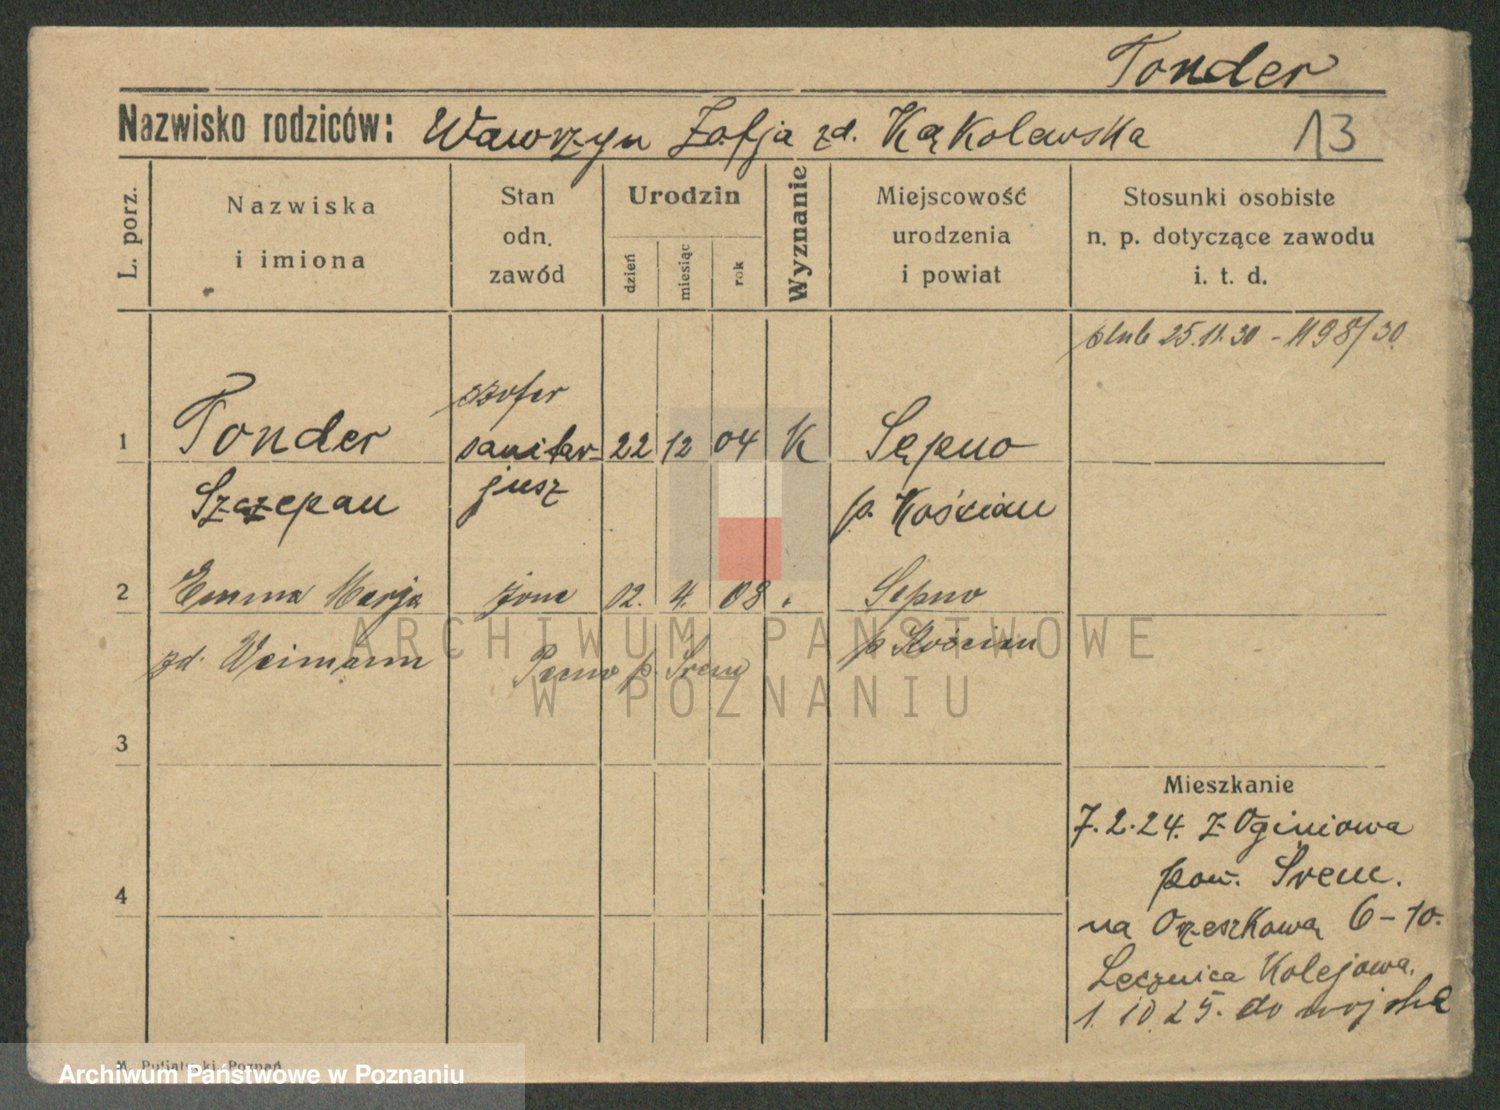 Tonder
Nazwisko rodziców: Wawrzyn Zofja zd. Kąkolewska 13
L. porz.
Nazwiska
i imiona
Stan
odn.
zawód
Urodzin
dzień
miesiąc
rok
Wyznanie
Miejscowość
urodzenia
i powiat
Stosunki osobiste
n. p. dotyczące zawodu
i. t. d.
ślub 25.11.30 - 1198/30.
szofer
1 Tonder sanitar- 22 12 04 K Sępno
Szczepan jusz p. Kościan
2 Emma Marja żona 02. 4. 08 Sępno
zd. Weimann p. Śrem p Kościan
3
4
Mieszkanie
7.2.24. z Oginiowa
pow. Śrem.
na Orzeszkową 6-10.
Lecznica Kolejowa.
1.10.25. do wojska
ARCHIWUM PAŃSTWOWE
W POZNANIU
Poznań
Archiwum Państwowe w Poznaniu